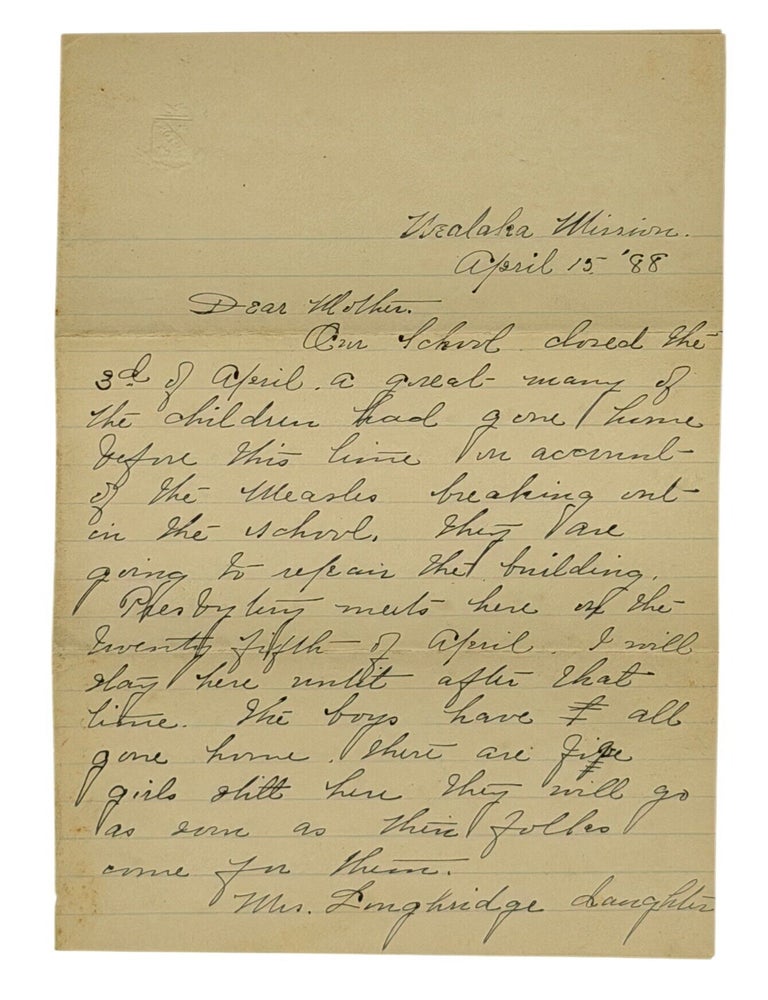 Wealaka Mission.
April 15. '88
Dear Mother.
Our School closed the
3d of April. a great many of
the children had gone home
before this time on account
of the Measles breaking out
in the school. They are
going to repair the building.
Presbytery meets here on the
twenty fifth of April. I will
stay here until after that
time. The boys have all
gone home. there are five
girls still here they will go
as soon as their folks
come for them.
Mrs. Longhridge daughter